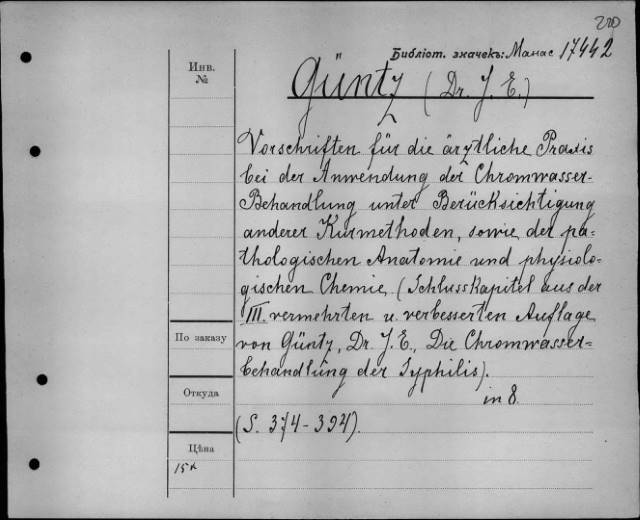 200
Библіот. значекъ: Манас 17442
Инв.
№
Güntz (Dr. J. E.)
Vorschriften für die ärztliche Praxis
bei der Anwendung der Chromwasser-
Behandlung unter Berücksichtigung
anderer Kurmethoden, sowie der pa-
thologischen Anatomie und physiolo-
gischen Chemie (Schlusskapitel aus der
III. vermehrten u. verbesserten Auflage
По заказу
von Güntz, Dr. J. E., Die Chromwasser-
behandlung der Syphilis).
Откуда
in 8.
(S. 374-394).
Цѣна
15к